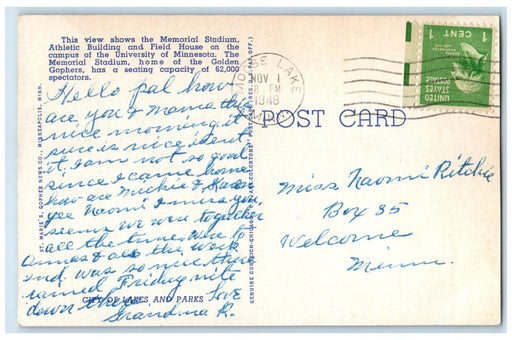 This view shows the Memorial Stadium,
Athletic Building and Field House on the
campus of the University of Minnesota. The
Memorial Stadium, home of the Golden
Gophers, has a seating capacity of 62,000
spectators.
Hello pal how
are you & Mama this
nice morning it
sure is nice isent
it, I am not so good
since I came home
how are Mickie & Karen
gee Naomi I miss you,
seems we were together
all the time were to
Annas & also the week
end was so nice there
rained Friday nite
down there Love
Grandma R.
CITY OF LAKES AND PARKS
ST. MARIE'S GOPHER NEWS CO., MINNEAPOLIS, MINN.
GENUINE CURTEICH-CHICAGO "C.T. ART-COLORTONE" POST CARD (REG. U.S. PAT. OFF.)
MOOSE LAKE
NOV 1
8 PM
1948
MINN.
1 CENT 1
UNITED
STATES
POSTAGE
POST CARD
Miss Naomi Ritchie
Box 35
Welcome
Minn.